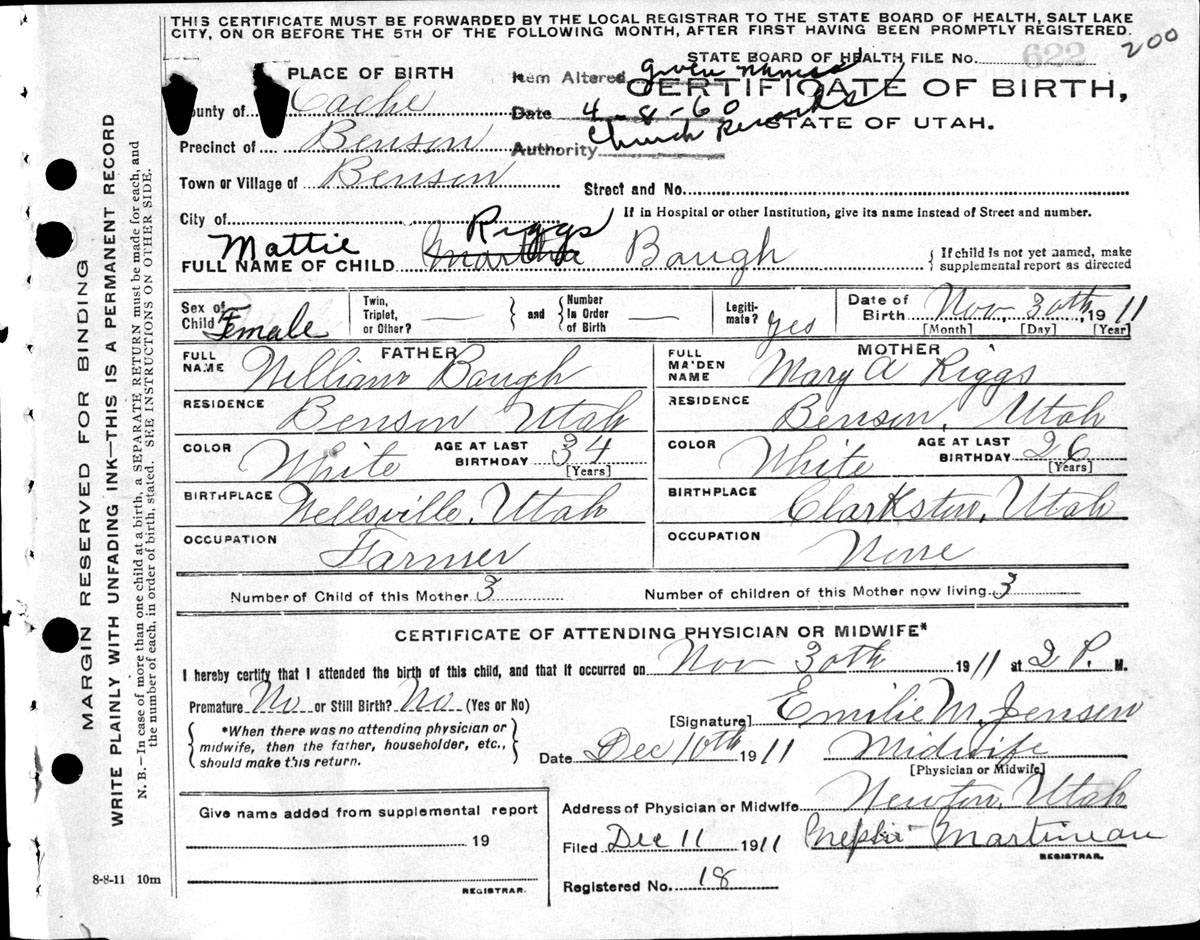 THIS CERTIFICATE MUST BE FORWARDED BY THE LOCAL REGISTRAR TO THE STATE BOARD OF HEALTH, SALT LAKE
CITY, ON OR BEFORE THE 5TH OF THE FOLLOWING MONTH, AFTER FIRST HAVING BEEN PROMPTLY REGISTERED.
STATE BOARD OF HEALTH FILE NO. 622 200
PLACE OF BIRTH
Item Altered given names
CERTIFICATE OF BIRTH,
County of Cache
Date 4-8-60
STATE OF UTAH.
Precinct of Benson
Authority Church Records
Town or Village of Benson
Street and No.
City of
If in Hospital or other Institution, give its name instead of Street and number.
Mattie Riggs
FULL NAME OF CHILD Martha Baugh
If child is not yet named, make
supplemental report as directed
Sex of
Child Female
Twin,
Triplet,
or Other? —
and
Number
In Order
of Birth —
Legiti-
mate? yes
Date of
Birth Nov, 30th, 1911
[Month] [Day] [Year]
FATHER
FULL
NAME William Baugh
RESIDENCE Benson Utah
COLOR White
AGE AT LAST
BIRTHDAY 34
[Years]
BIRTHPLACE Wellsville, Utah
OCCUPATION Farmer
MOTHER
FULL
MAIDEN
NAME Mary A Riggs
RESIDENCE Benson, Utah
COLOR White
AGE AT LAST
BIRTHDAY 26
[Years]
BIRTHPLACE Clarkston, Utah
OCCUPATION None
Number of Child of this Mother 3
Number of children of this Mother now living 3
CERTIFICATE OF ATTENDING PHYSICIAN OR MIDWIFE*
I hereby certify that I attended the birth of this child, and that it occurred on Nov 30th 1911 at 2 P. M.
Premature No or Still Birth? No (Yes or No)
*When there was no attending physician or
midwife, then the father, householder, etc.,
should make this return.
[Signature] Emilie M. Jensen
Date Dec 10th 1911 Midwife
[Physician or Midwife]
Give name added from supplemental report
19
REGISTRAR.
Address of Physician or Midwife Newton, Utah
Filed Dec 11 1911 Nephi Martineau
REGISTRAR.
Registered No. 18
8-8-11 10m
MARGIN RESERVED FOR BINDING
WRITE PLAINLY WITH UNFADING INK—THIS IS A PERMANENT RECORD
N. B.—In case of more than one child at a birth, a SEPARATE RETURN must be made for each, and
the number of each, in order of birth, stated. SEE INSTRUCTIONS ON OTHER SIDE.